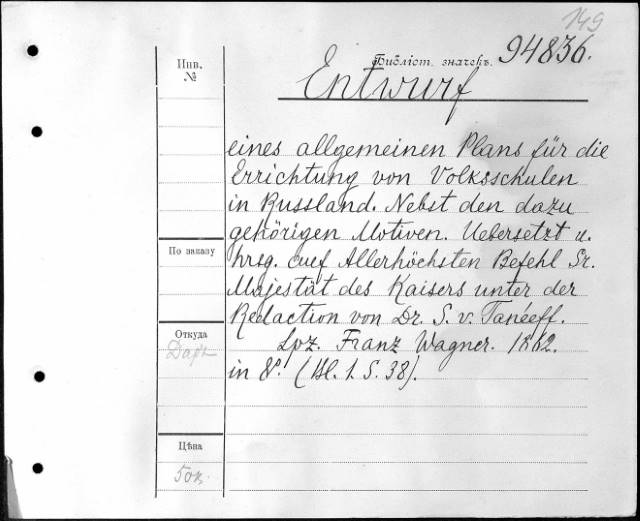 149
Инв.
№
Библіот. значекъ.
94836.
Entwurf
eines allgemeinen Plans für die
Errichtung von Volksschulen
in Russland. Nebst den dazu
gehörigen Motiven. Uebersetzt u.
hrsg. auf Allerhöchsten Befehl Sr.
Majestät des Kaisers unter der
Redaction von Dr. S. v. Tanéeff.
Lpz. Franz Wagner. 1862.
in 8º. (Bl. 1. S. 38).
По заказу
Откуда
Даръ
Цѣна
50к.